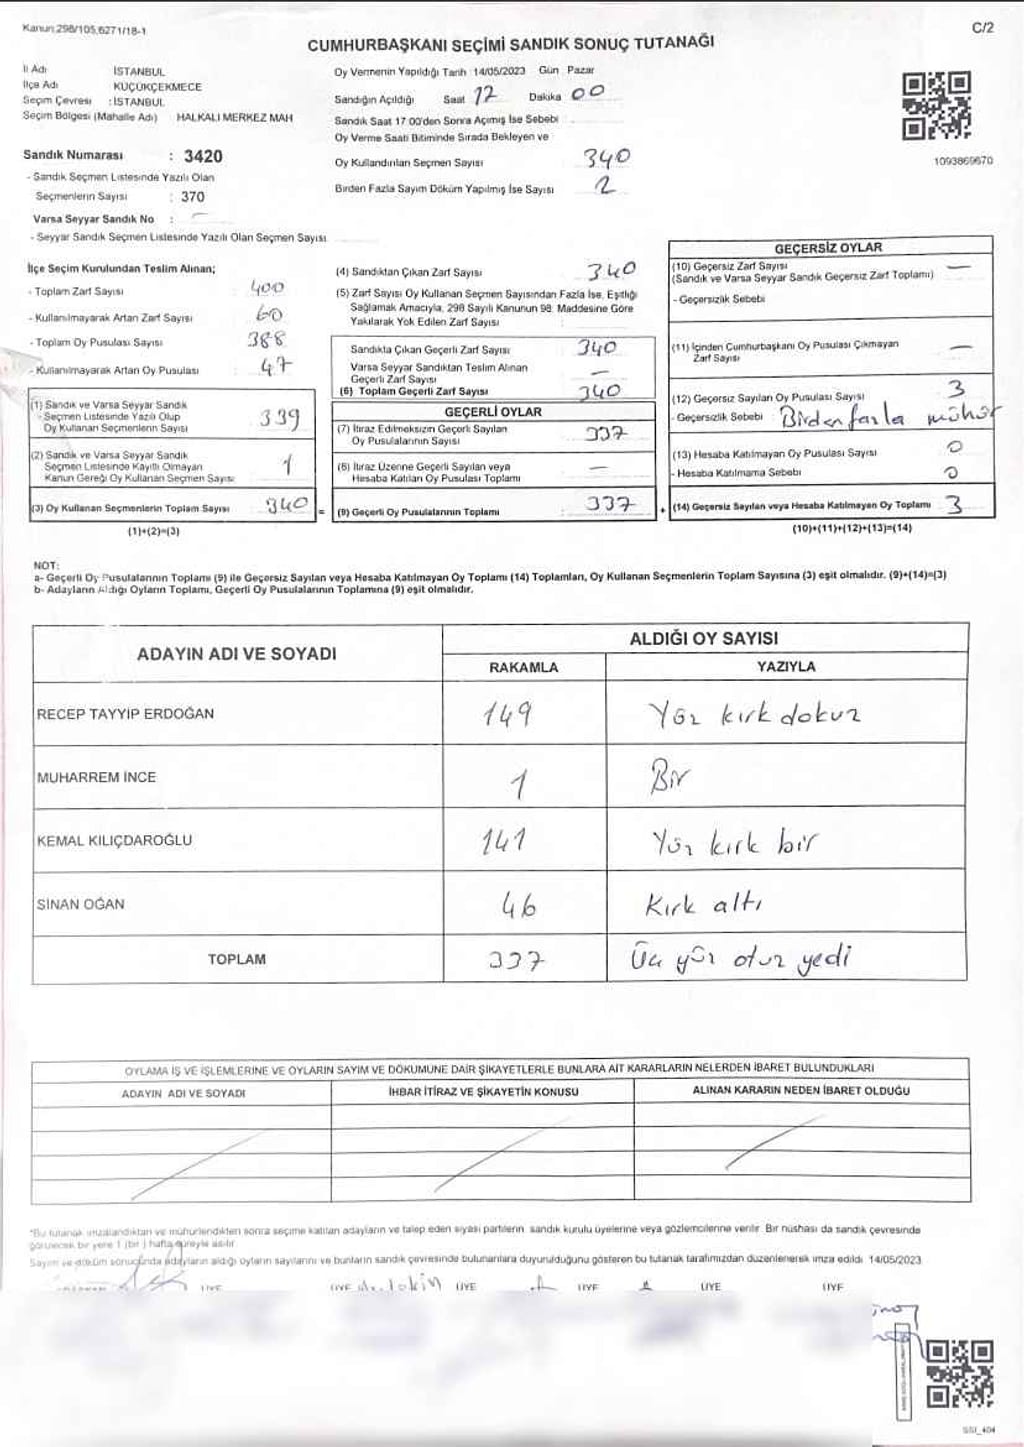 Kanun;298/105,6271/18-1
C/2
CUMHURBAŞKANI SEÇİMİ SANDIK SONUÇ TUTANAĞI
İl Adı İSTANBUL
İlçe Adı KÜÇÜKÇEKMECE
Seçim Çevresi : İSTANBUL
Seçim Bölgesi (Mahalle Adı) HALKALI MERKEZ MAH
Sandık Numarası : 3420
- Sandık Seçmen Listesinde Yazılı Olan
Seçmenlerin Sayısı : 370
Varsa Seyyar Sandık No : -
- Seyyar Sandık Seçmen Listesinde Yazılı Olan Seçmen Sayısı
Oy Vermenin Yapıldığı Tarih : 14/05/2023 Gün Pazar
Sandığın Açıldığı Saat 17 Dakika 00
Sandık Saat 17 00'den Sonra Açımış İse Sebebi :
Oy Verme Saati Bitiminde Sırada Bekleyen ve
Oy Kullandırılan Seçmen Sayısı 340
Birden Fazla Sayım Döküm Yapılmış İse Sayısı 2
1093869670
İlçe Seçim Kurulundan Teslim Alınan;
- Toplam Zarf Sayısı 400
- Kullanılmayarak Artan Zarf Sayısı 60
- Toplam Oy Pusulası Sayısı 388
- Kullanılmayarak Artan Oy Pusulası 47
(1) Sandık ve Varsa Seyyar Sandık
Seçmen Listesinde Yazılı Olup
Oy Kullanan Seçmenlerin Sayısı 339
(2) Sandık ve Varsa Seyyar Sandık
Seçmen Listesinde Kayıtlı Olmayan
Kanun Gereği Oy Kullanan Seçmen Sayısı 1
(3) Oy Kullanan Seçmenlerin Toplam Sayısı 340 =
(1)+(2)=(3)
(4) Sandıktan Çıkan Zarf Sayısı 340
(5) Zarf Sayısı Oy Kullanan Seçmen Sayısından Fazla İse, Eşitliği
Sağlamak Amacıyla, 298 Sayılı Kanunun 98. Maddesine Göre
Yakılarak Yok Edilen Zarf Sayısı :
Sandıkta Çıkan Geçerli Zarf Sayısı 340
Varsa Seyyar Sandıktan Teslim Alınan
Geçerli Zarf Sayısı -
(6) Toplam Geçerli Zarf Sayısı 340
GEÇERLİ OYLAR
(7) İtiraz Edilmeksizin Geçerli Sayılan
Oy Pusulalarının Sayısı 337
(8) İtiraz Üzerine Geçerli Sayılan veya
Hesaba Katılan Oy Pusulası Toplamı -
(9) Geçerli Oy Pusulalarının Toplamı : 337 +
GEÇERSİZ OYLAR
(10) Geçersiz Zarf Sayısı -
(Sandık ve Varsa Seyyar Sandık Geçersiz Zarf Toplamı)
- Geçersizlik Sebebi
(11) İçinden Cumhurbaşkanı Oy Pusulası Çıkmayan
Zarf Sayısı -
(12) Geçersiz Sayılan Oy Pusulası Sayısı 3
- Geçersizlik Sebebi Birden fazla mühür
(13) Hesaba Katılmayan Oy Pusulası Sayısı 0
- Hesaba Katılmama Sebebi 0
(14) Geçersiz Sayılan veya Hesaba Katılmayan Oy Toplamı 3
(10)+(11)+(12)+(13)=(14)
NOT:
a- Geçerli Oy Pusulalarının Toplamı (9) ile Geçersiz Sayılan veya Hesaba Katılmayan Oy Toplamı (14) Toplamları, Oy Kullanan Seçmenlerin Toplam Sayısına (3) eşit olmalıdır. (9)+(14)=(3)
b- Adayların Aldığı Oyların Toplamı, Geçerli Oy Pusulalarının Toplamına (9) eşit olmalıdır.
ADAYIN ADI VE SOYADI
ALDIĞI OY SAYISI
RAKAMLA YAZIYLA
RECEP TAYYİP ERDOĞAN 149 Yüz kırk dokuz
MUHARREM İNCE 1 Bir
KEMAL KILIÇDAROĞLU 141 Yüz kırk bir
SİNAN OĞAN 46 Kırk altı
TOPLAM 337 Üç yüz otuz yedi
OYLAMA İŞ VE İŞLEMLERİNE VE OYLARIN SAYIM VE DÖKÜMÜNE DAİR ŞİKAYETLERLE BUNLARA AİT KARARLARIN NELERDEN İBARET BULUNDUKLARI
ADAYIN ADI VE SOYADI İHBAR İTİRAZ VE ŞİKAYETİN KONUSU ALINAN KARARIN NEDEN İBARET OLDUĞU
*Bu tutanak imzalandıktan ve mühürlendikten sonra seçime katılan adayların ve talep eden siyasi partilerin sandık kurulu üyelerine veya gözlemcilerine verilir. Bir nüshası da sandık çevresinde
görülecek bir yere 1 (bir ) hafta süreyle asılır
Sayım ve döküm sonucunda adayların aldığı oyların sayılarını ve bunların sandık çevresinde bulunanlara duyurulduğunu gösteren bu tutanak tarafımızdan düzenlenerek imza edildi 14/05/2023
ÜYE ÜYE ÜYE ÜYE ÜYE ÜYE
SSI_404